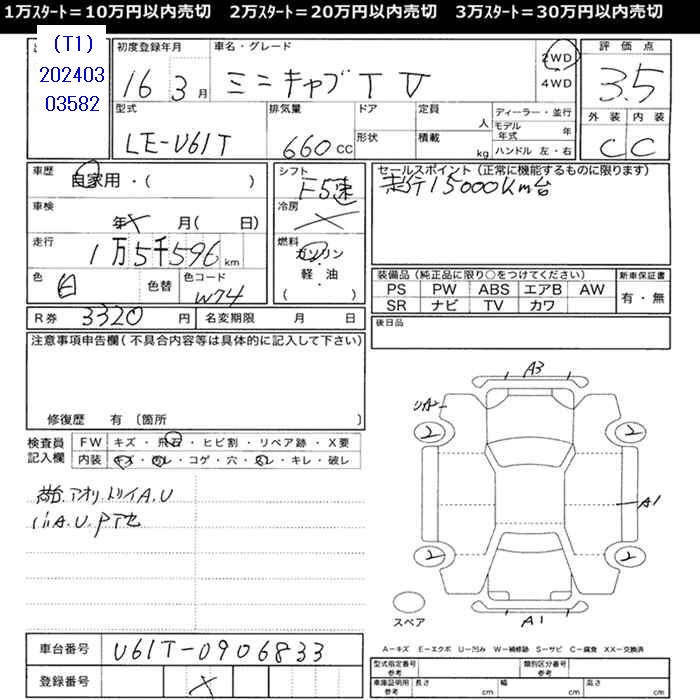 1万ｽﾀｰﾄ＝10万円以内売切　2万ｽﾀｰﾄ＝20万円以内売切　3万ｽﾀｰﾄ＝30万円以内売切
(T1)
202403
03582
初度登録年月
16 3月
車名・グレード
ミニキャブTV
2WD
4WD
評価点
3.5
型式
LE-U61T
排気量
660cc
ドア
形状
定員
人
積載
kg
ディーラー・並行
モデル年式 年
ハンドル 左・右
外装 内装
C C
車歴
自家用・( )
車検
年 X 月( 日)
走行
1万5千596km
色
白
色替
色コード
W74
シフト
F5速
冷房
燃料
ガソリン
軽・油
( )
セールスポイント(正常に機能するものに限ります)
走行15000Km台
装備品(純正品に限り○をつけてください)
新車保証書
PS PW ABS エアB AW
SR ナビ TV カワ
有・無
R券 3320円
名変期限 月 日
後日品
注意事項申告欄(不具合内容等は具体的に記入して下さい)
修復歴 有 〔箇所 〕
検査員
記入欄
FW キズ・飛石・ヒビ割・リペア跡・X要
内装 キズ・汚レ・コゲ・穴・スレ・キレ・破レ
アオリ.トリイA.U
A.U.P
A3
A2
2
2
A1
2
2
A1
スペア
A－キズ E－エクボ U－凹み W－補修跡 S－サビ C－腐食 XX－交換済
車台番号 U61T-0906833
登録番号 X
型式指定番号
参考
類別区分番号
参考
車庫証明用
参考
長さ cm
幅 cm
高さ cm